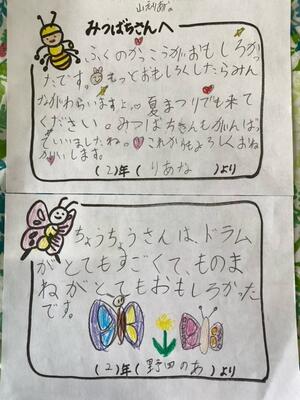 みつばちさんへ
ふくのがっこうがおもしろかっ
たです。もっとおもしろくしたらみん
ながわらいますよ。夏まつりでも来て
ください。みつばちさんもがんばっ
ていいましたね。これからもよろしくおね
がいします。
(2)年(りあな)より
ちょうちょうさんは、ドラム
がとてもすごくて、ものま
ねがとてもおもしろかった
です。
(2)年(野田のあ)より